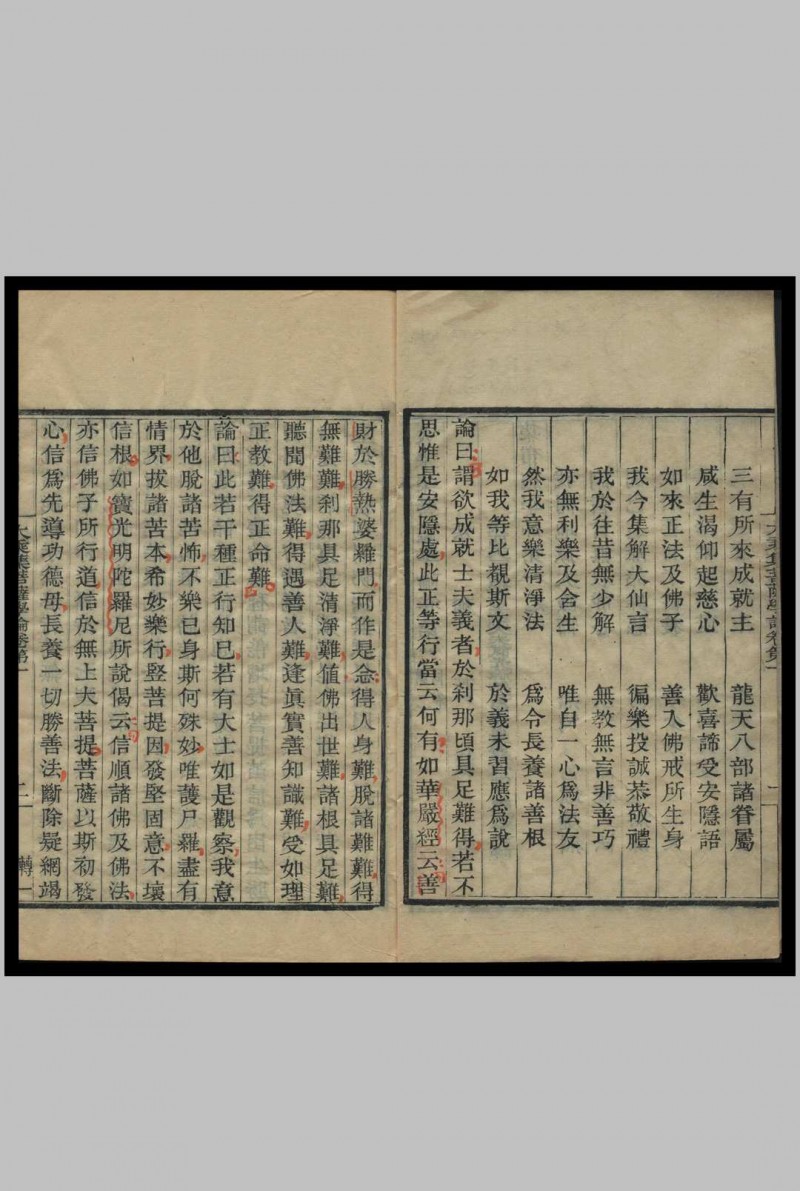 三有所來成就主　龍天八部諸眷屬
咸生渴仰起慈心　歡喜諦受安隱語
如來正法及佛子　善入佛戒所生身
我今集解大仙言　徧樂投誠恭敬禮
我於往昔無少解　無教無言非善巧
亦無利樂及含生　唯自一心爲法友
然我意樂清淨法　爲令長養諸善根
如我等比覩斯文　於義未習應爲說
論曰謂欲成就士夫義者於刹那頃具足難得若不
思惟是安隱處此正等行當云何有如華嚴經云善
財於勝熱婆羅門而作是念得人身難脫諸難難得
無難難刹那具足清淨難值佛出世難諸根具足難
聽聞佛法難得遇善人難逢眞實善知識難受如理
正教難得正命難
論曰此若干種正行知已若有大士如是觀察我意
於他脫諸苦怖不樂已身斯何殊妙唯護尸羅盡有
情界拔諸苦本希妙樂行堅菩提因發堅固意不壞
信根如寶光明陀羅尼所說偈云信順諸佛及佛法
亦信佛子所行道信於無上大菩提菩薩以斯初發
心信爲先導功德母長養一切勝善法斷除疑網竭
大乘集菩薩學論卷第一
二